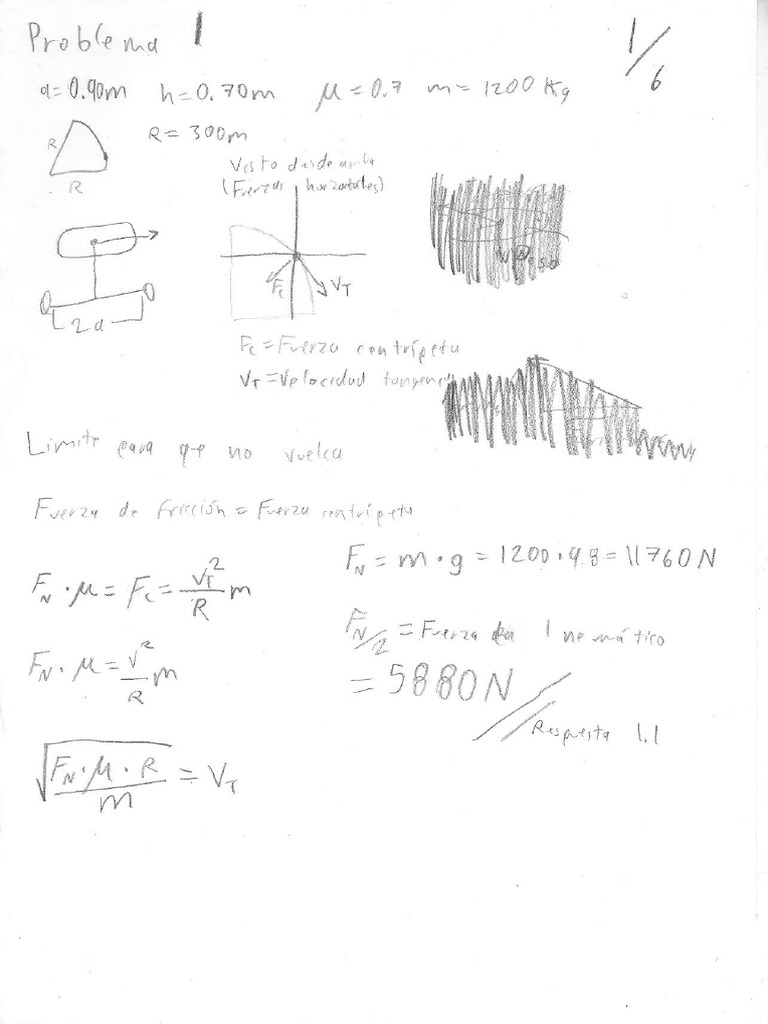 Problema 1
1/6
a=0.90m h=0.70m μ=0.7 m=1200 Kg
R= 300m
R
R
Visto desde arriba
(Fuerzas horizontales)
Fc
VT
2a
Fc=Fuerza centrípeta
VT=Velocidad tangencial
Limite para que no vuelca
Fuerza de fricción = Fuerza centripeta
FN·μ = Fc = VT²/R m
FN = m·g = 1200·9.8 = 11760N
FN·μ = V²/R m
FN/2 = Fuerza 1 neumático
= 5880N
Respuesta 1.1
√(FN·μ·R/m) = VT